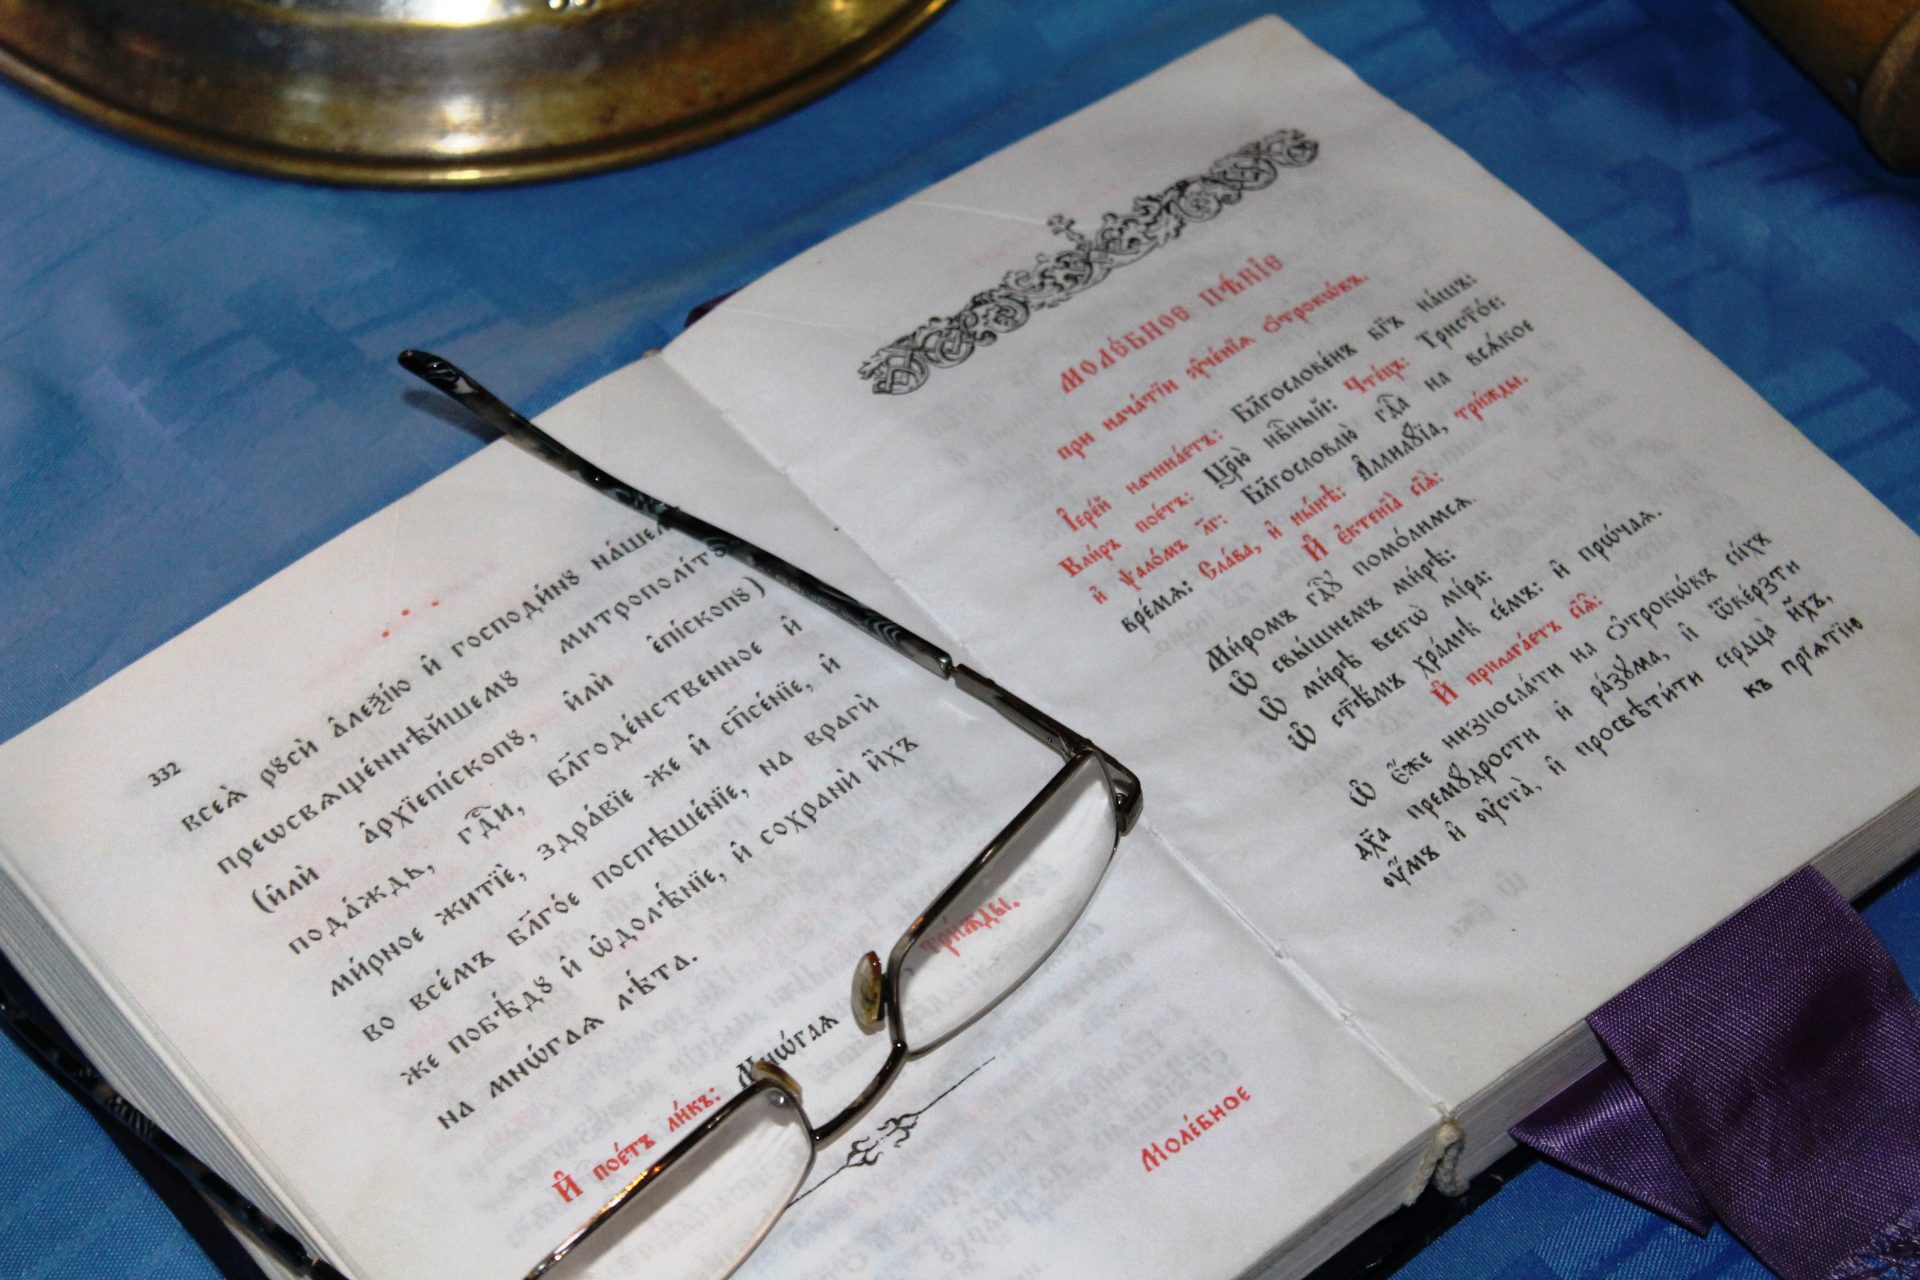 332
всеѧ̀ рꙋсѝ а҆леѯі́ю и҆ господи́нꙋ на́шемꙋ
преѡсвѧще́ннѣйшемꙋ митрополі́тꙋ
(и҆лѝ а҆рхїепі́скопꙋ, и҆лѝ є҆пі́скопꙋ)
пода́ждь, гдⷭ҇и, бл҃годе́нственное и҆
ми́рное житїѐ, здра́вїе же и҆ сп҃се́нїе, и҆
во все́мъ бл҃го́е поспѣше́нїе, на врагѝ
же побѣ́дꙋ и҆ ѡ҆долѣ́нїе, и҆ сохранѝ и҆̀хъ
на мнѡ́гаѧ лѣ̑та.
И҆ пое́тъ ли́къ: Мнѡ́гаѧ
три́жды.
Моле́бное
Моле́бное пѣ́нїе
при нача́тїи ᲂу҆че́нїѧ ѻ҆трокѡ́въ.
І҆ере́й начина́етъ: Бл҃гослове́нъ бг҃ъ на́шъ:
Кли́ръ пое́тъ: Цр҃ю̀ нбⷭ҇ный: Чте́цъ: Трист҃о́е:
и҆ ѱало́мъ л҃г: Бл҃гословлю̀ гдⷭ҇а на всѧ́кое
вре́мѧ: Сла́ва, и҆ ны́нѣ: А҆ллилꙋ́їа, три́жды.
И҆ є҆ктенїа̀ сїѧ̀:
Ми́ромъ гдⷭ҇ꙋ помо́лимсѧ.
Ѡ҆ свы́шнемъ ми́рѣ:
Ѡ҆ ми́рѣ всегѡ̀ мі́ра:
Ѡ҆ ст҃ѣ́мъ хра́мѣ се́мъ: и҆ прѡ́чаѧ.
И҆ прилага́етъ сїѧ̑:
Ѡ҆ є҆́же низпосла́ти на ѻ҆трокѡ́въ си́хъ
дх҃а премꙋ́дрости и҆ ра́зꙋма, и҆ ѿве́рзти
ᲂу҆́мъ и҆ ᲂу҆ста̀, и҆ просвѣти́ти сердца̀ и҆́хъ,
къ прїѧ́тїю